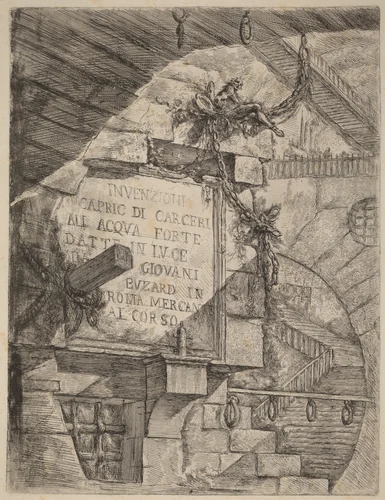 INVENZIONI
CAPRIC DI CARCERI
ALL ACQVA FORTE
DATTE IN LVCE
GIOVANI
BUZARD IN
ROMA MERCAN
AL CORSO